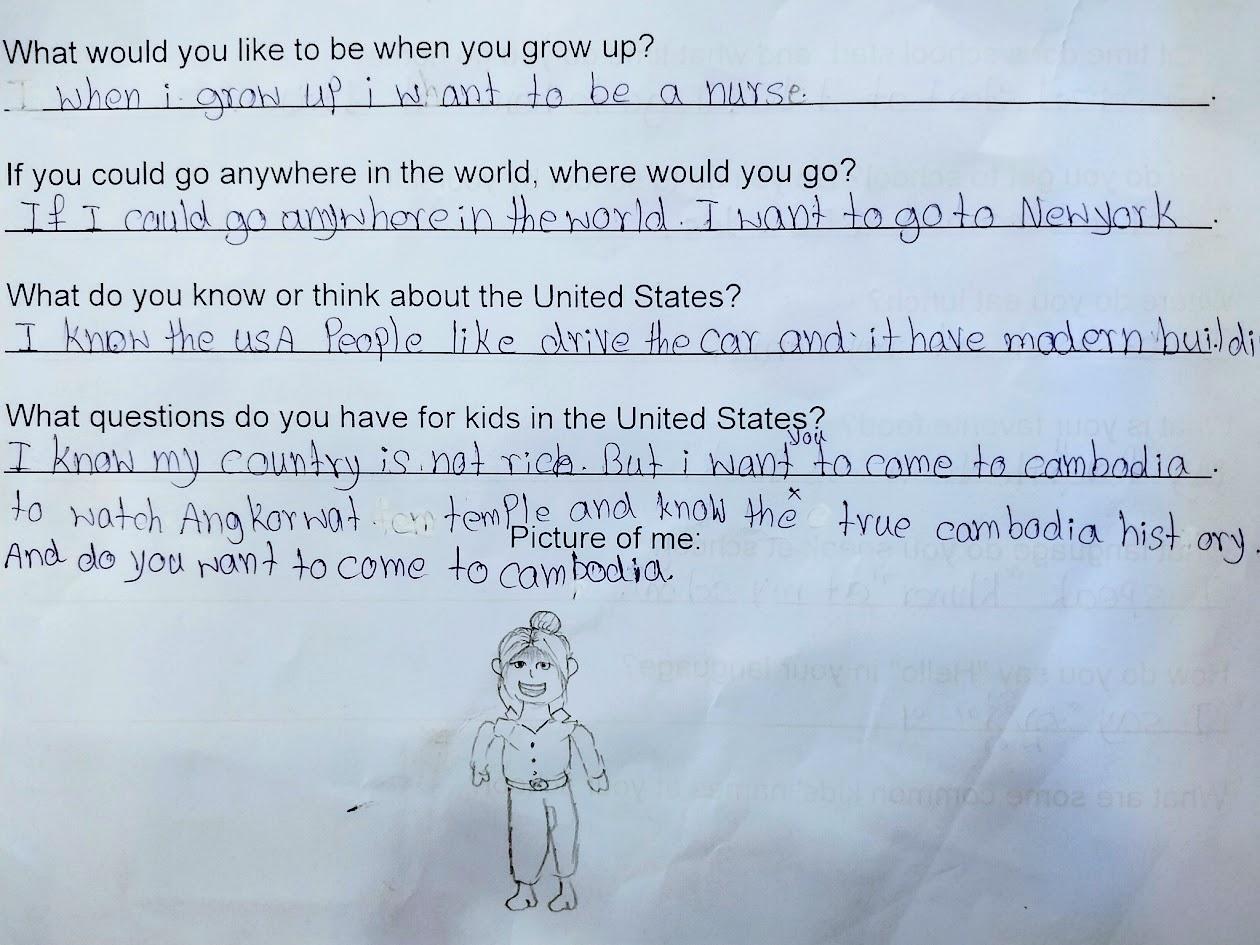 What would you like to be when you grow up?
I when i grow up i whant to be a nurse.
If you could go anywhere in the world, where would you go?
If I could go anywhere in the world. I want to go to Newyork.
What do you know or think about the United States?
I know the usA People like drive the car and it have modern buildi
What questions do you have for kids in the United States?
I know my country is not rich. But i want you to come to cambodia.
to watch Angkorwat temple and know the true cambodia history.
Picture of me:
And do you want to come to cambodia.